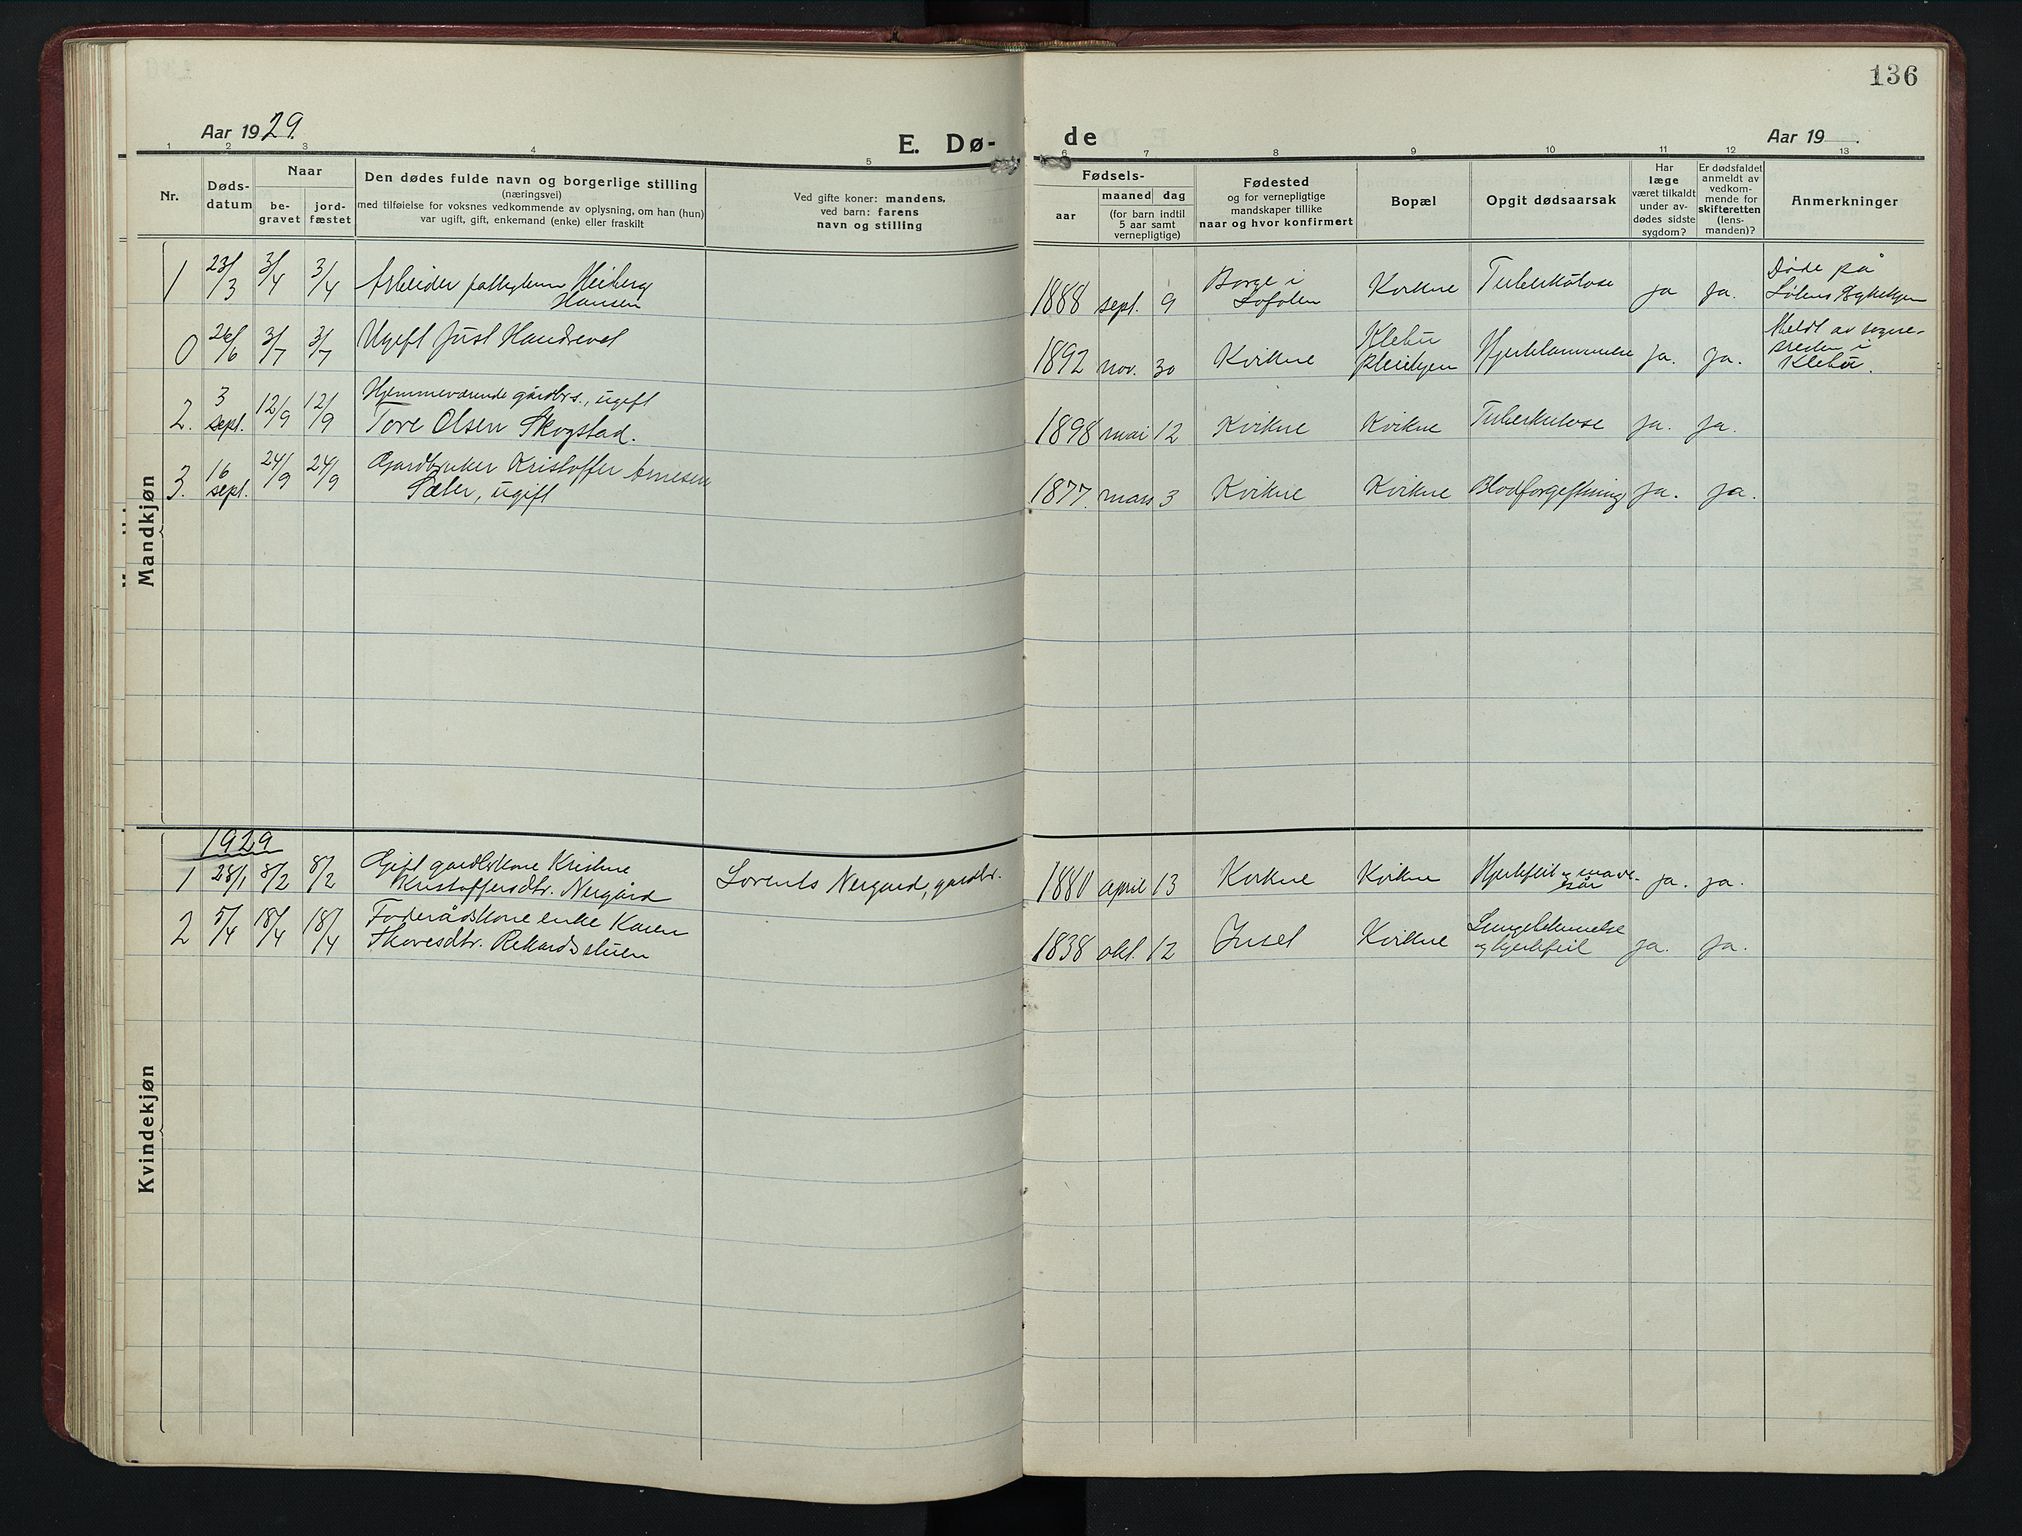 136
Aar 1929.
E. Dø-
de
Aar 19
1 2 3 4 5 6 7 8 9 10 11 12 13
Nr.
Døds-
datum
Naar
be-
gravet
jord-
fæstet
Den dødes fulde navn og borgerlige stilling
(næringsvei)
med tilføielse for voksnes vedkommende av oplysning, om han (hun)
var ugift, gift, enkemand (enke) eller fraskilt
Ved gifte koner: mandens,
ved barn: farens
navn og stilling
Fødsels-
aar
maaned dag
(for barn indtil
5 aar samt
vernepligtige)
Fødested
og for vernepligtige
mandskaper tillike
naar og hvor konfirmert
Bopæl
Opgit dødsaarsak
Har
læge
været tilkaldt
under av-
dødes sidste
sygdom?
Er dødsfaldet
anmeldt av
vedkom-
mende for
skifteretten
(lens-
manden)?
Anmerkninger
Mandkjøn
1 23/3 3/4 3/4 Arbeider Heiberg
Hansen
1888 sept. 9 Borge i
Lofoten
Kvikne Tuberkulose ja ja.
Døde på
0 26/6 3/7 3/7 Ugift Just Handsevol
1892 nov. 30 Kvikne
Klebu
Pleiehjem
Hjertelammelse ja. ja.
Meldt av sogne-
presten i
Klebu.
2. 3
sept. 12/9 12/9 Hjemmeværende gårdbrs., ugift
Tore Olsen Skogstad.
1898 mai 12 Kvikne Kvikne Tuberkulose ja. ja.
3. 16
sept. 24/9 24/9 Gardbruker Kristoffer Arnesen
Sæter, ugift
1877. mars 3 Kvikne Kvikne Blodforgiftning ja. ja.
Kvindekjøn
1929
1 28/1 8/2 8/2 Gift gardbrkone Kristine
Kristoffersdtr. Nergård
Lorents Nergard, gardbr.
1880 april 13 Kvikne Kvikne Hjertefeil og mave-
sår
ja. ja.
2 5/4 18/4 18/4 Føderådskone enke Karen
Thoresdtr. Rekardsstuen
1838 okt. 12 Inset Kvikne Lungebetennelse
og hjertefeil
ja. ja.